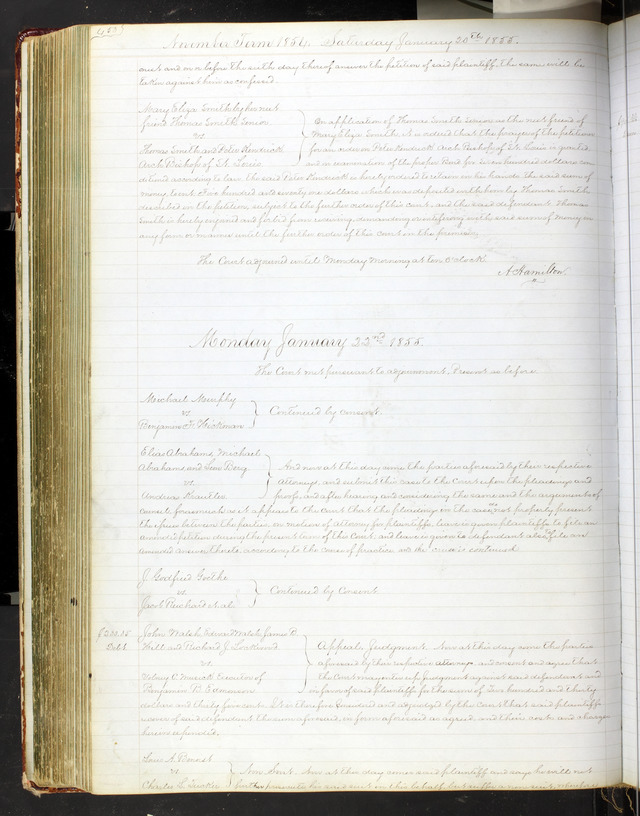 453
November Term 1854. Saturday January 20th 1855.
court and on or before the sixth day thereof answer the petition of said plaintiff the same will be
taken against him as confessed.
Mary Eliza Smith by her next
friend Thomas Smith Senior
vs
Thomas Smith and Peter Kendrick
Arch Bishop of St. Louis
On application of Thomas Smith Senior as the next friend of
Mary Eliza Smith, it is ordered that the prayer of the petitioner
for an order on Peter Kendrick Arch Bishop of St. Louis is granted,
and on execution of the proper Bond for six hundred dollars con
ditioned according to law the said Peter Kendrick is hereby ordered to retain in his hands the said sum of
money, to wit Five hundred and seventy one dollars which was deposited with him by Thomas Smith
described in the petition, subject to the further order of this court, and the said defendant Thomas
Smith is hereby enjoined and forbid from receiving, demanding or interfering with the said sum of money in
any form or manner until the further order of this court in the premises.
The Court adjourned until Monday morning at ten o'clock
A. Hamilton.
Monday January 22nd 1855.
The Court met pursuant to adjournment. Present as before
Michael Murphy
vs.
Benjamin F. Hickman
Continued by consent.
Elias Abrahams, Michael
Abrahams and Levi Berg.
vs
Andreas Krautler
And now at this day come the parties aforesaid by their respective
attorneys, and submit this case to the Court upon the pleadings and
proofs, and after hearing and considering the same and the arguments of
counsel, forasmuch as it appears to the court that the pleadings in the case, not properly present
the issues between the parties, on motion of attorney for plaintiffs, leave is given plaintiffs to file an
amended petition during the present term of the Court, and leave is given to defendant also to file an
amended answer thereto, according to the course of practice and the cause is continued
J. Godfried Goethe
vs.
Jacob Reichard et al.
Continued by Consent
$230.35
Debt
John Walsh Edward Walsh James C.
Hill and Richard J. Lockwood
vs.
Executor of
Benjamin B. Edmonson
Appeal. Judgment. Now at this day come the parties
aforesaid by their respective attorneys, and consent and agree that
the Court may enter up judgment against said defendant and
in favor of said plaintiffs for the sum of Two hundred and thirty
dollars and thirty five cents. It is therefore considered and adjudged by the court that said plaintiffs
recover of said defendant the sum aforesaid, in form aforesaid as agreed, and their costs and charges
herein expended.
Louis A. Benoist
vs
Charles L. Tucker
Non Suit. Now at this day comes said plaintiff and says he will not
further prosecute his said suit in this behalf, but suffer a non suit